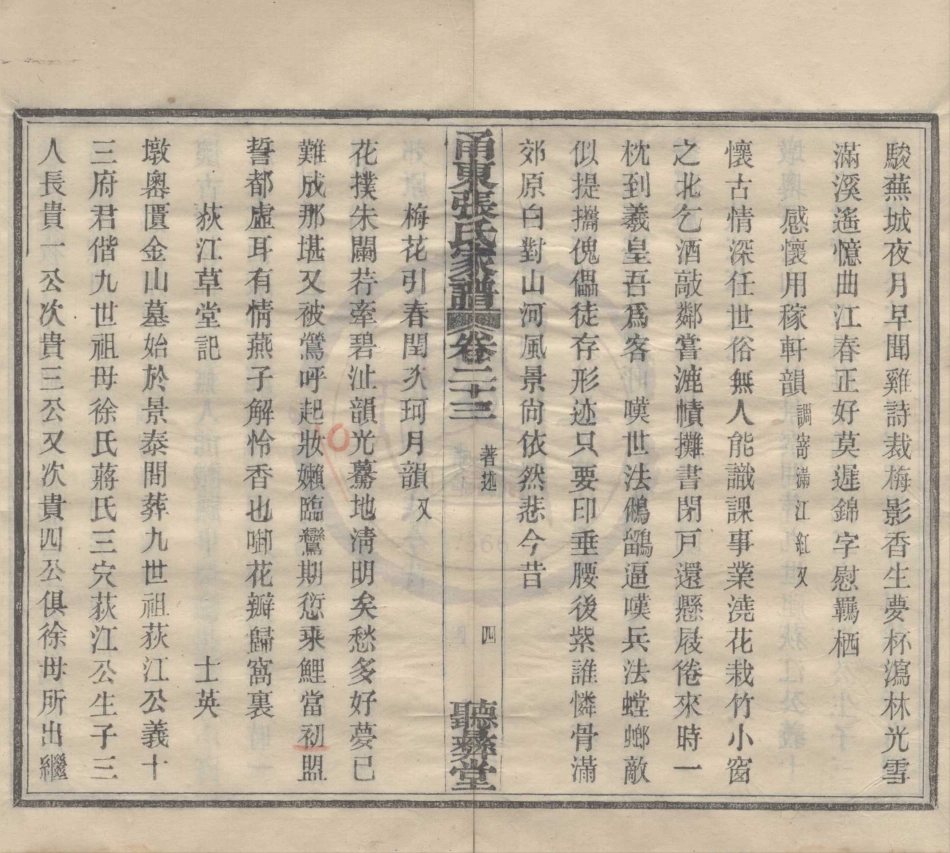 駿蕪城夜月早聞雞詩裁梅影香生夢杯瀉林光雪
滿溪遙憶曲江春正好莫遲錦字慰羈栖
感懷用稼軒韻 調寄滿江紅 又
懷古情深任世俗無人能識課事業澆花栽竹小窗
之北乞酒敲鄰嘗漉幘攤書閉戸還懸屐倦來時一
枕到羲皇吾爲客 嘆世法鵂鶹逼嘆兵法螳螂敵
似提攜傀儡徒存形迹只要印垂腰後紫誰憐骨滿
郊原白對山河風景尙依然悲今昔
甬東張氏家譜 卷二十三 著述 四 聽彝堂
梅花引春閨次珂月韻 又
花撲朱闌荇牽碧沚韻光驀地淸明矣愁多好夢已
難成那堪又被鶯呼起妝嬾臨鸞期愆乘鯉當初盟
誓都虛耳有情燕子解怜香也啣花瓣歸窩裏
荻江草堂記 士英
墩嶴匱金山墓始於景泰間葬九世祖荻江公義十
三府君偕九世祖母徐氏蔣氏三穴荻江公生子三
人長貴一公次貴三公又次貴四公俱徐母所出繼
10